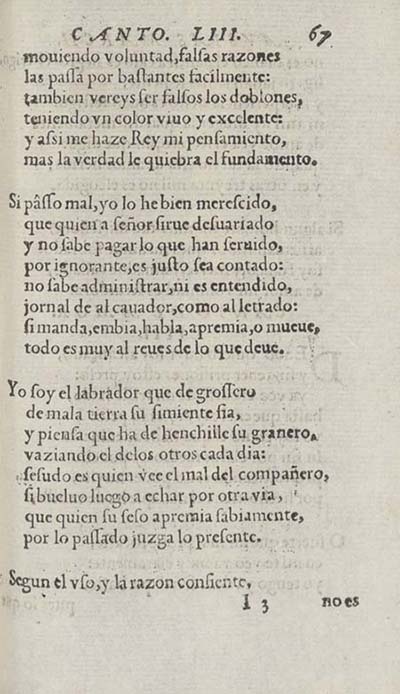 CANTO. LIII. 67
mouiendo voluntad, falsas razones
las passa por bastantes facilmente:
tambien vereys ser falsos los doblones,
teniendo vn color viuo y excelente:
y assi me haze Rey mi pensamiento,
mas la verdad le quiebra el fundamento.
Si pâsso mal, yo lo he bien merescido,
que quien a señor sirue desuariado
y no sabe pagar lo que han seruido,
por ignorante, es justo sea contado:
no sabe administrar, ni es entendido,
jornal de al cauador, como al letrado:
si manda, embia, habla, apremia, o mueue,
todo es muy al reues de lo que deue.
Yo soy el labrador que de grossero
de mala tierra su simiente fia,
y piensa que ha de henchille su granero,
vaziando el delos otros cada dia:
sesudo es quien vee el mal del compañero,
si bueluo luego a echar por otra via,
que quien su seso apremia sabiamente,
por lo passado juzga lo presente.
Segun el vso, y la razon consiente,
I 3 no es